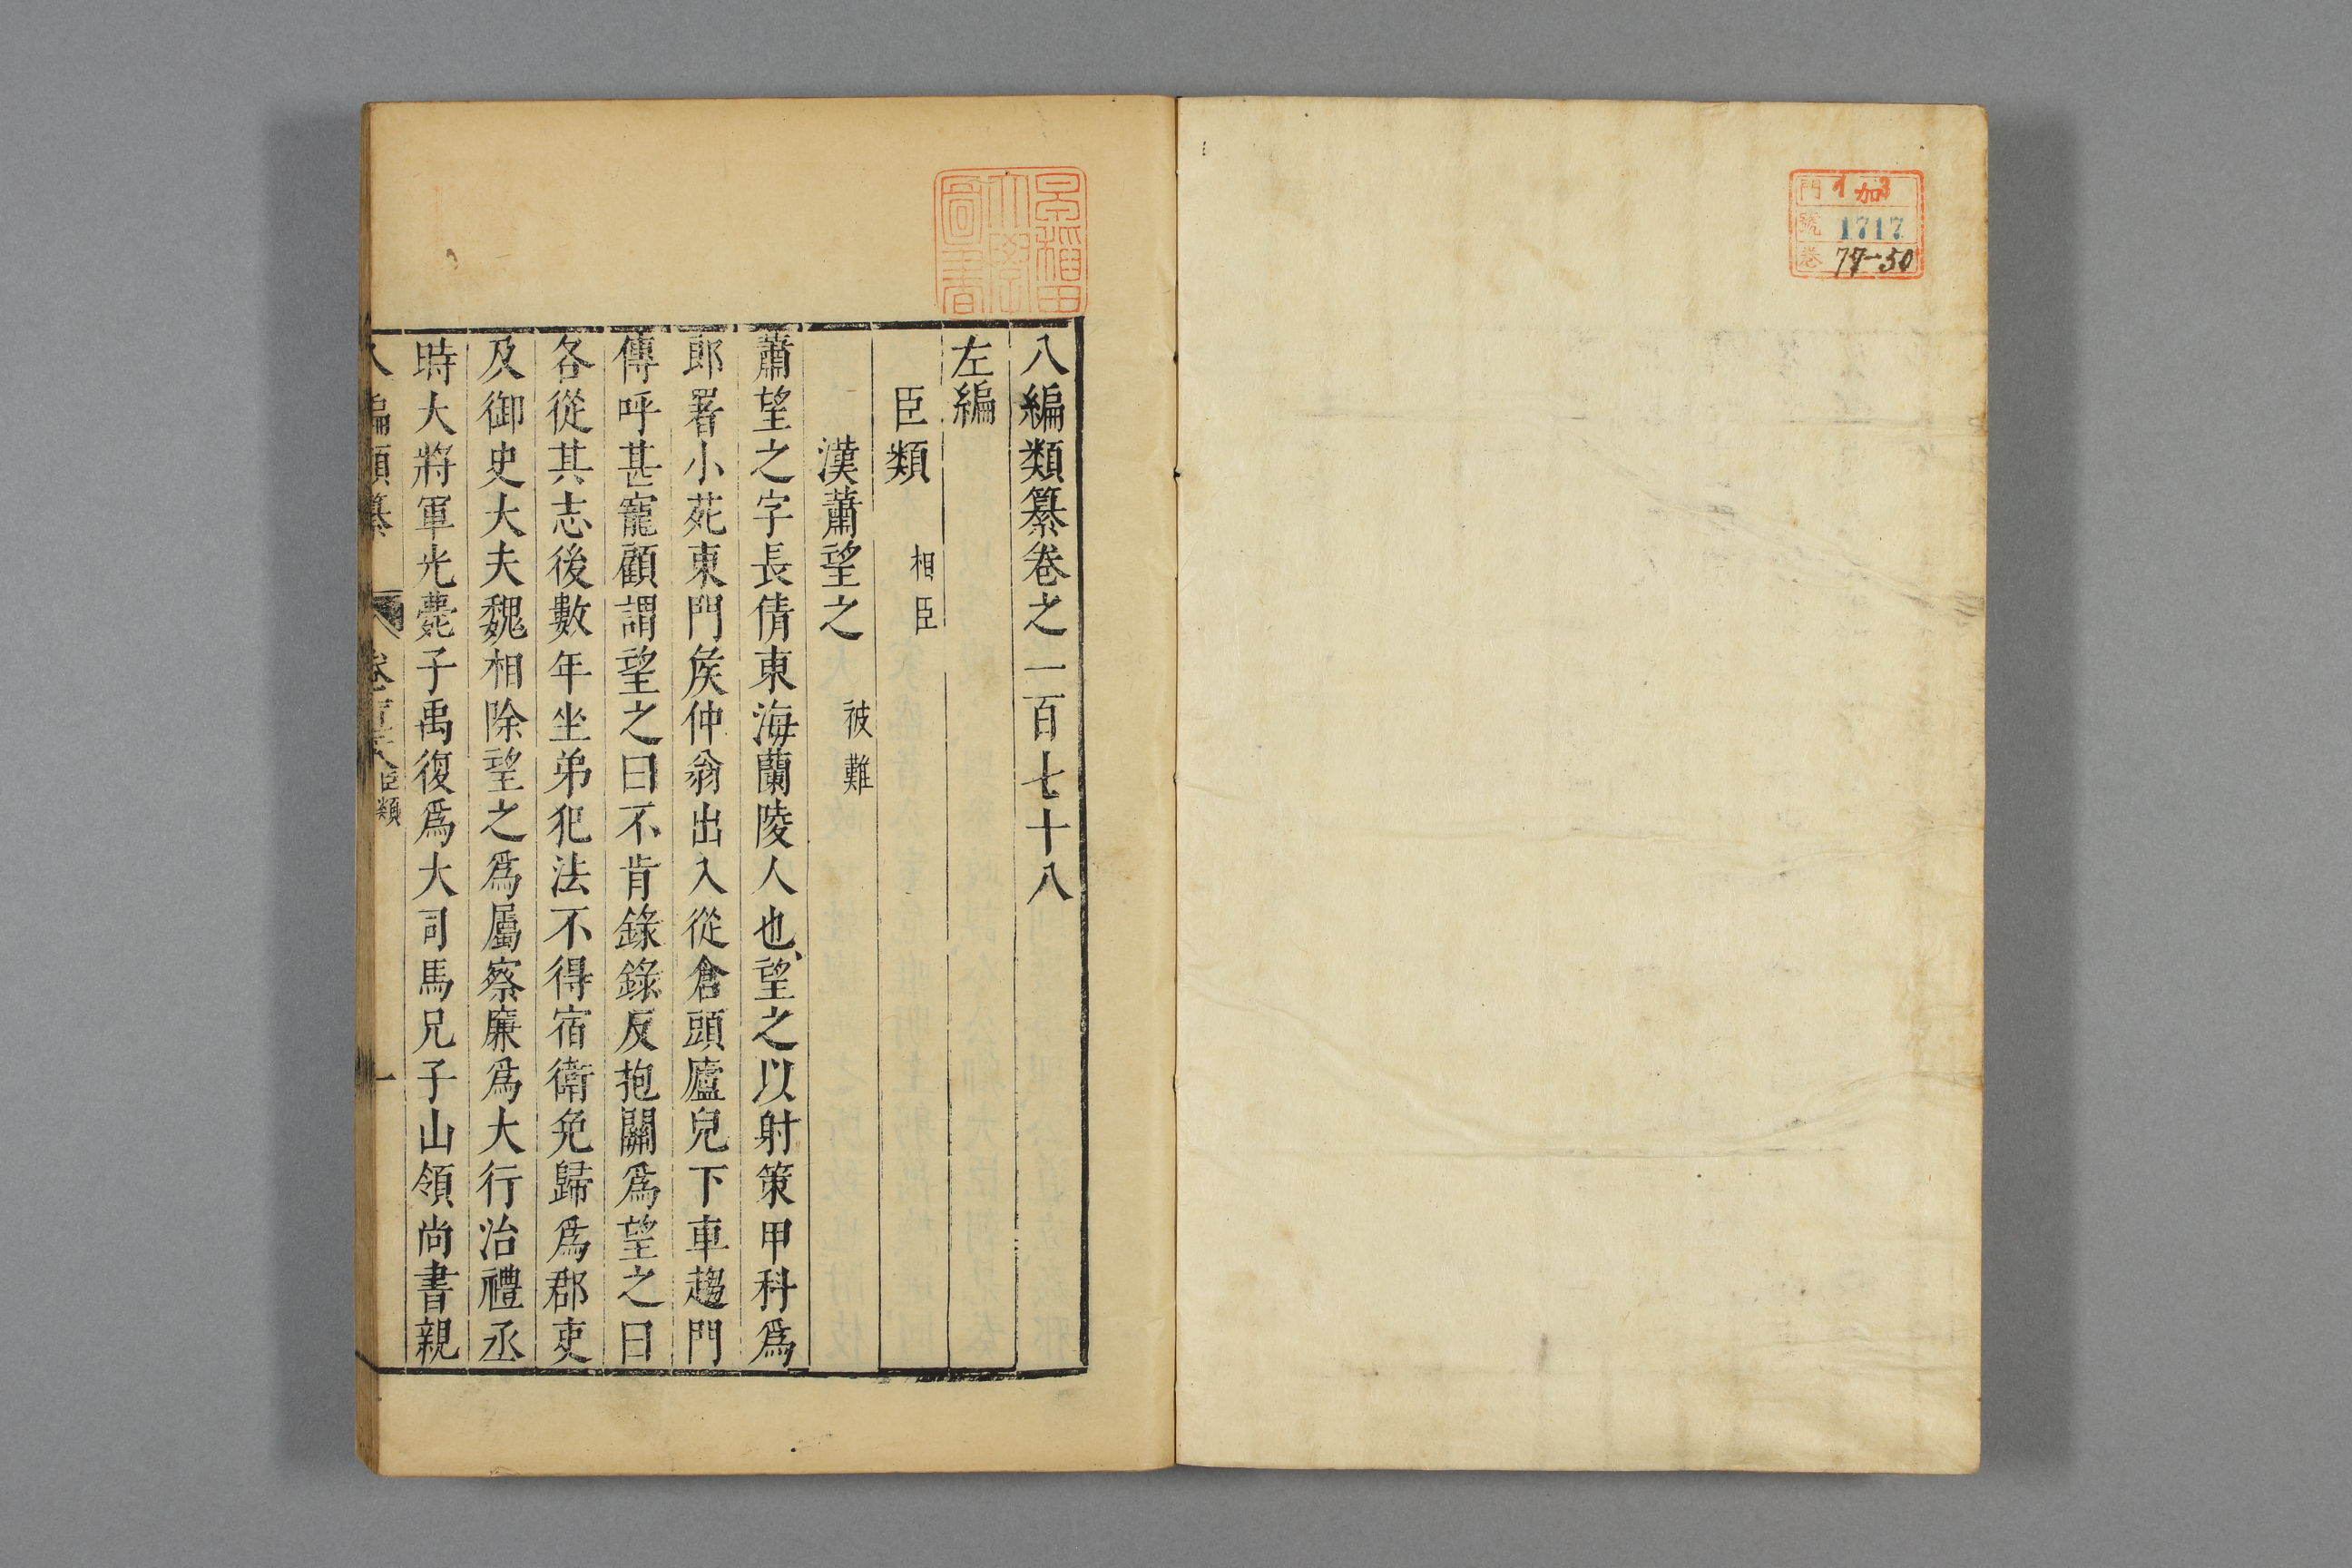 門 1 加3
號 1717
卷 77-50
早稲田
大學
圖書
八編類纂卷之一百七十八
左編
臣類 相臣
漢蕭望之 被難
蕭望之字長倩東海蘭陵人也、望之以射策甲科爲
郎署小苑東門矦仲翁出入從倉頭廬兒下車趨門
傳呼甚寵顧謂望之曰不肯錄錄反抱關爲望之曰
各從其志後數年坐弟犯法不得宿衛免歸爲郡吏
及御史大夫魏相除望之爲屬察廉爲大行治禮丞
時大將軍光薨子禹復爲大司馬兄子山領尚書親
八編類纂 卷 臣類 一